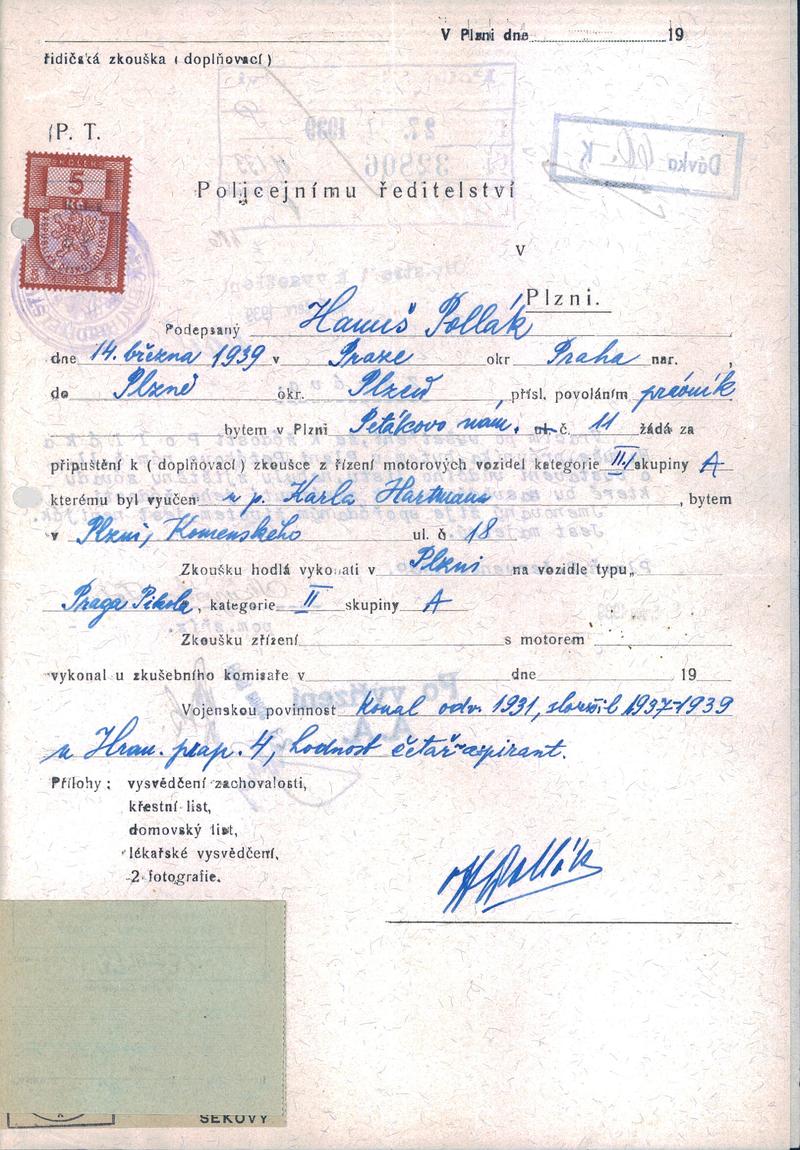 V Plzni dne 19
řidičská zkouška (doplňovací)
P. T.
KOLEK
5
Kč
Policejnímu ředitelství
v
Plzni.
Podepsaný Hanuš Pollák
dne 14. března 1939 v Praze okr Praha nar. ,
do Plzně okr. Plzeň , přísl. povoláním právník
bytem v Plzni Petákovo nám. ul. č. 11 žádá za
připuštění k (doplňovací) zkoušce z řízení motorových vozidel kategorie II./ skupiny A
kterému byl vyučen u p. Karla Hartmana , bytem
v Plzni, Komenského ul. č. 18
Zkoušku hodlá vykonati v Plzni na vozidle typu „
Praga Pikola, kategorie II skupiny A
Zkoušku zřízení s motorem
vykonal u zkušebního komisaře v dne 19
Vojenskou povinnost Konal odv. 1931, 1937-1939
u Hran. prap. 4, hodnost četař-aspirant.
Přílohy: vysvědčení zachovalosti,
křestní list,
domovský list,
lékařské vysvědčení,
2 fotografie.
HPollák
SEKOVÝ
Dávka K
27. 1939
32806
Po vyřízení
A.A.